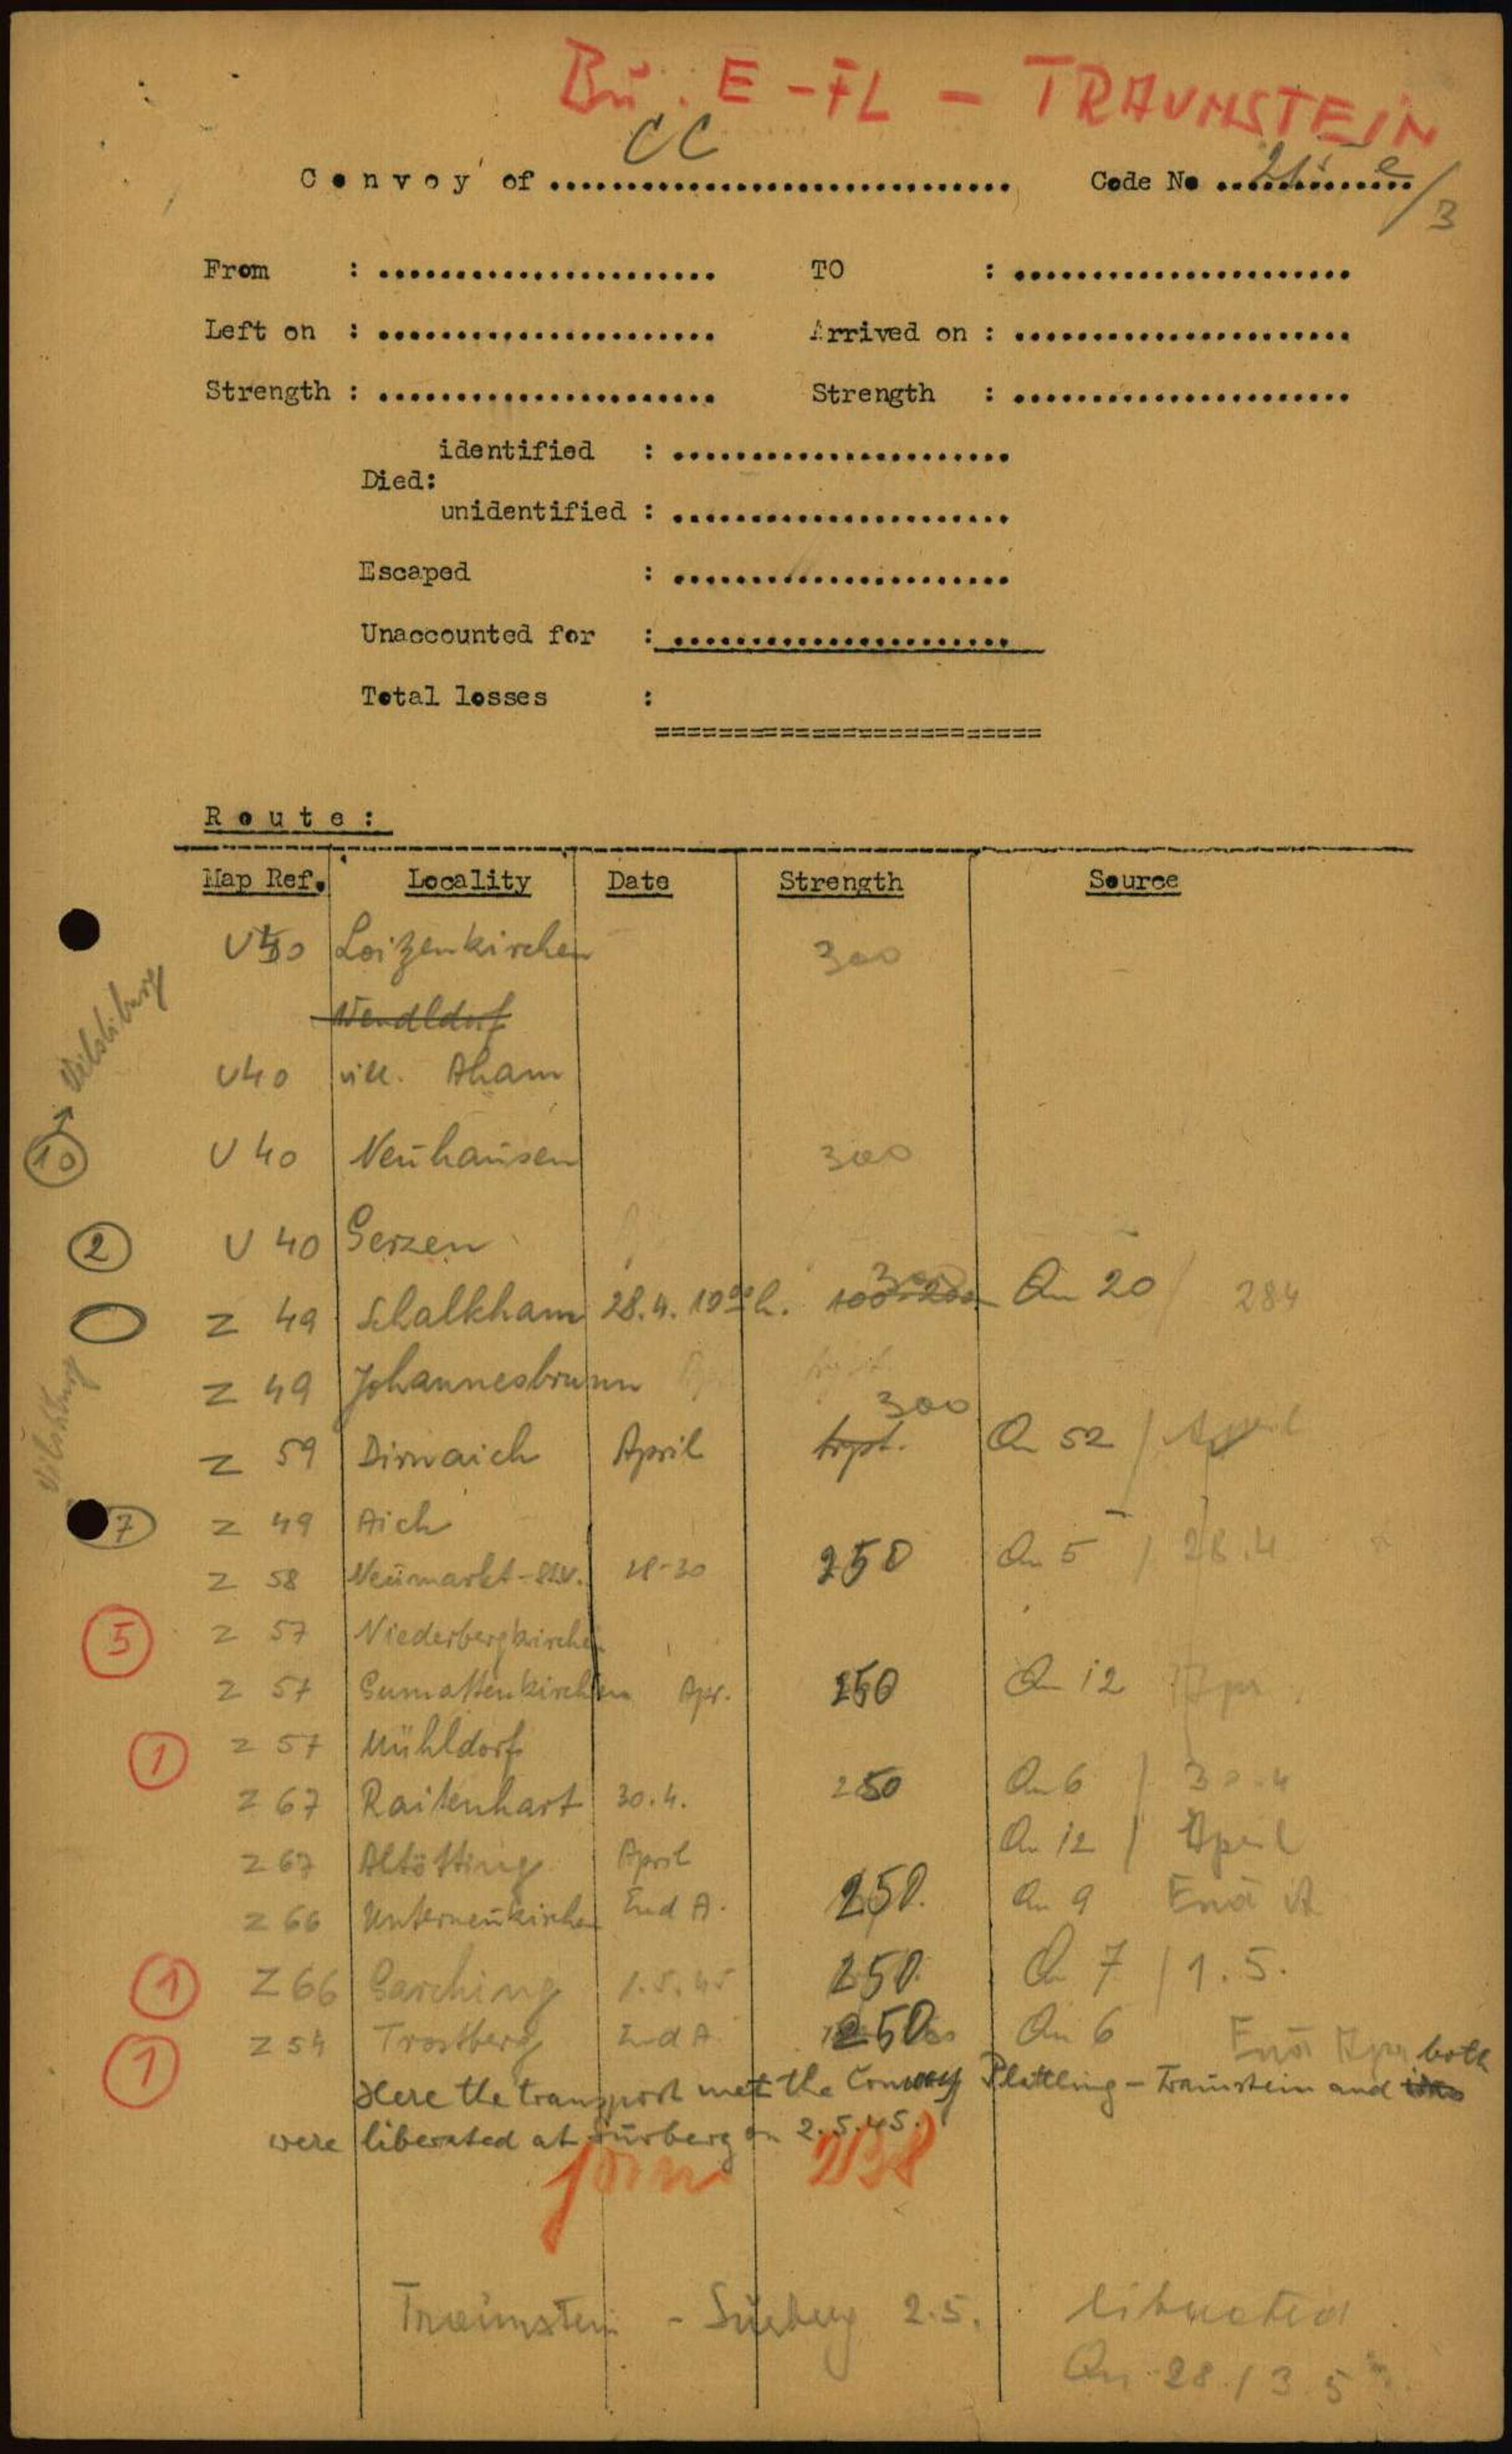 Bu. E - FL - TRAUNSTEIN
CC
Convoy of .............................. Code No ............. e/3
From : ...................... TO : ......................
Left on : ...................... Arrived on : ......................
Strength : ...................... Strength : ......................
identified : ......................
Died:
unidentified : ......................
Escaped : ......................
Unaccounted for : ......................
Total losses :
=========================
Route:
Map Ref. Locality Date Strength Source
V50 Loizenkirchen 300
Wendldorf
Vilsbiburg
V40 vill. Aham
10 V 40 Neuhausen 300
2 V 40 Gerzen
Z 49 Schalkham 28.4. 10 00 h. 100-200 300 On 20 / 284
Z 49 Johannesbrunn
Vilsbiburg
Z 59 Dirnaich April trspt. 300 On 52 / April
7 Z 49 Aich
Z 58 Neumarkt- 28-30 250 On 5 / 28.4
5 Z 57 Niederbergkirchen
Z 57 Gumattenkirchen Apr. 250 On 12 Apr.
1 Z 57 Mühldorf
Z 67 Raitenhart 30.4. 250 On 6 / 30.4
Z 67 Altötting April On 12 / April
Z 66 Unterneukirchen End A. 250. On 9 End A
1 Z 66 Garching 1.5.45 250 On 7 / 1.5.
1 Z 54 Trostberg End A. 250 On 6 End Apr
Here the transport met the Convoy Plattling - Traunstein and both
were liberated at Surberg on 2.5.45.
form 238
Traunstein - Surberg 2.5. liberated
On 28 / 3 5